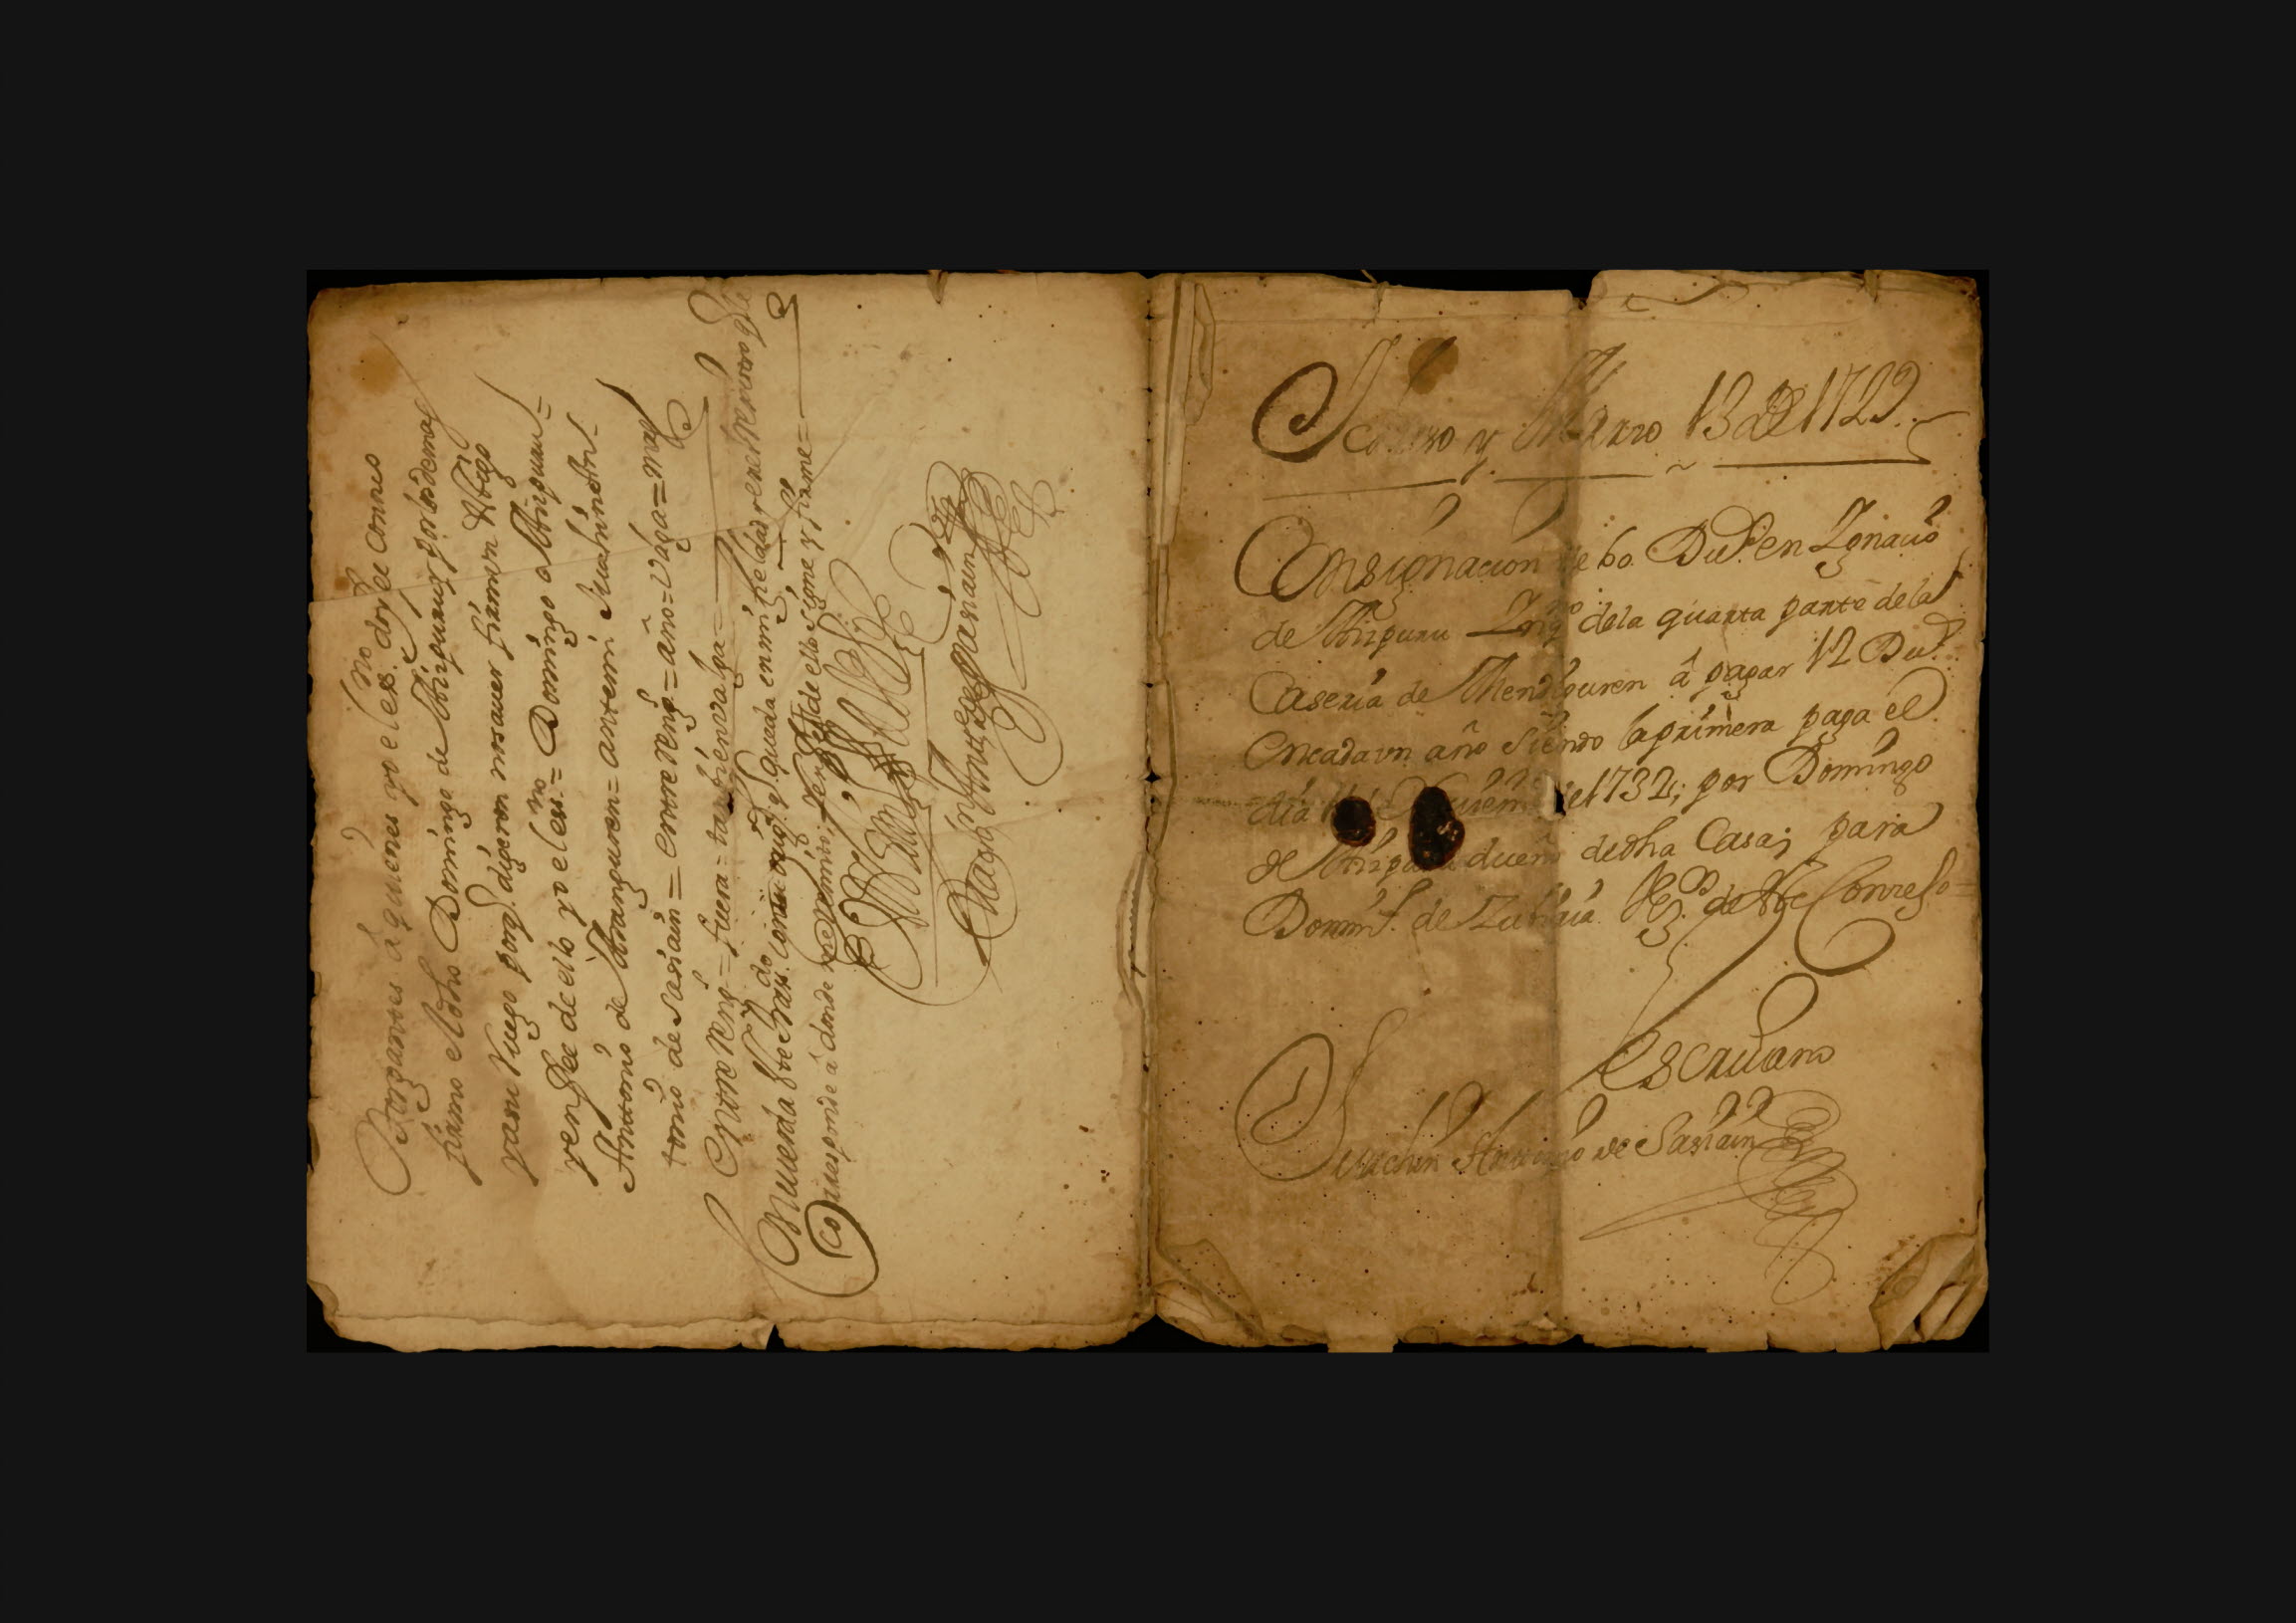 Otorgantes à quienes yo el ess.no doy fee conozco
firmo el dho Domingo de Aizpuru y por los demas
y a su ruego porq. digeron no sauer firmo vn testigo
y en fee de ello yo el ess.no = Domingo de Aizpuru =
Antonio de Aranguren = ante mi Juachin An-
tonio de Sasiain = entre Reng.s = año = Valga = mas
entre Reng.s = fuera = tambien valga =
Concuerda este tras.do con su orig.l q. queda en mi fieldad y en el Rexistro q. le
Corresponde à donde me Remito, y en fee de ello signe y firme =
Juachin Antt.o de Sasiain
Ycazo y Marzo 13 de 1729.
Consignacion de 60. Du.s en Ygnacio
de Aizpuru Ynq.no de la quarta parte de la
Caseria de Mendiguren â pagar 12 Du.s
en cada vn año siendo la primera paga el
dia de el 1732; por Domingo
de Aizpuru dueño de dha Casa; para
Domin.s de Zubiria Rex.or de este Concejo =
Escriuano
Juachin Antonio de Sasiain